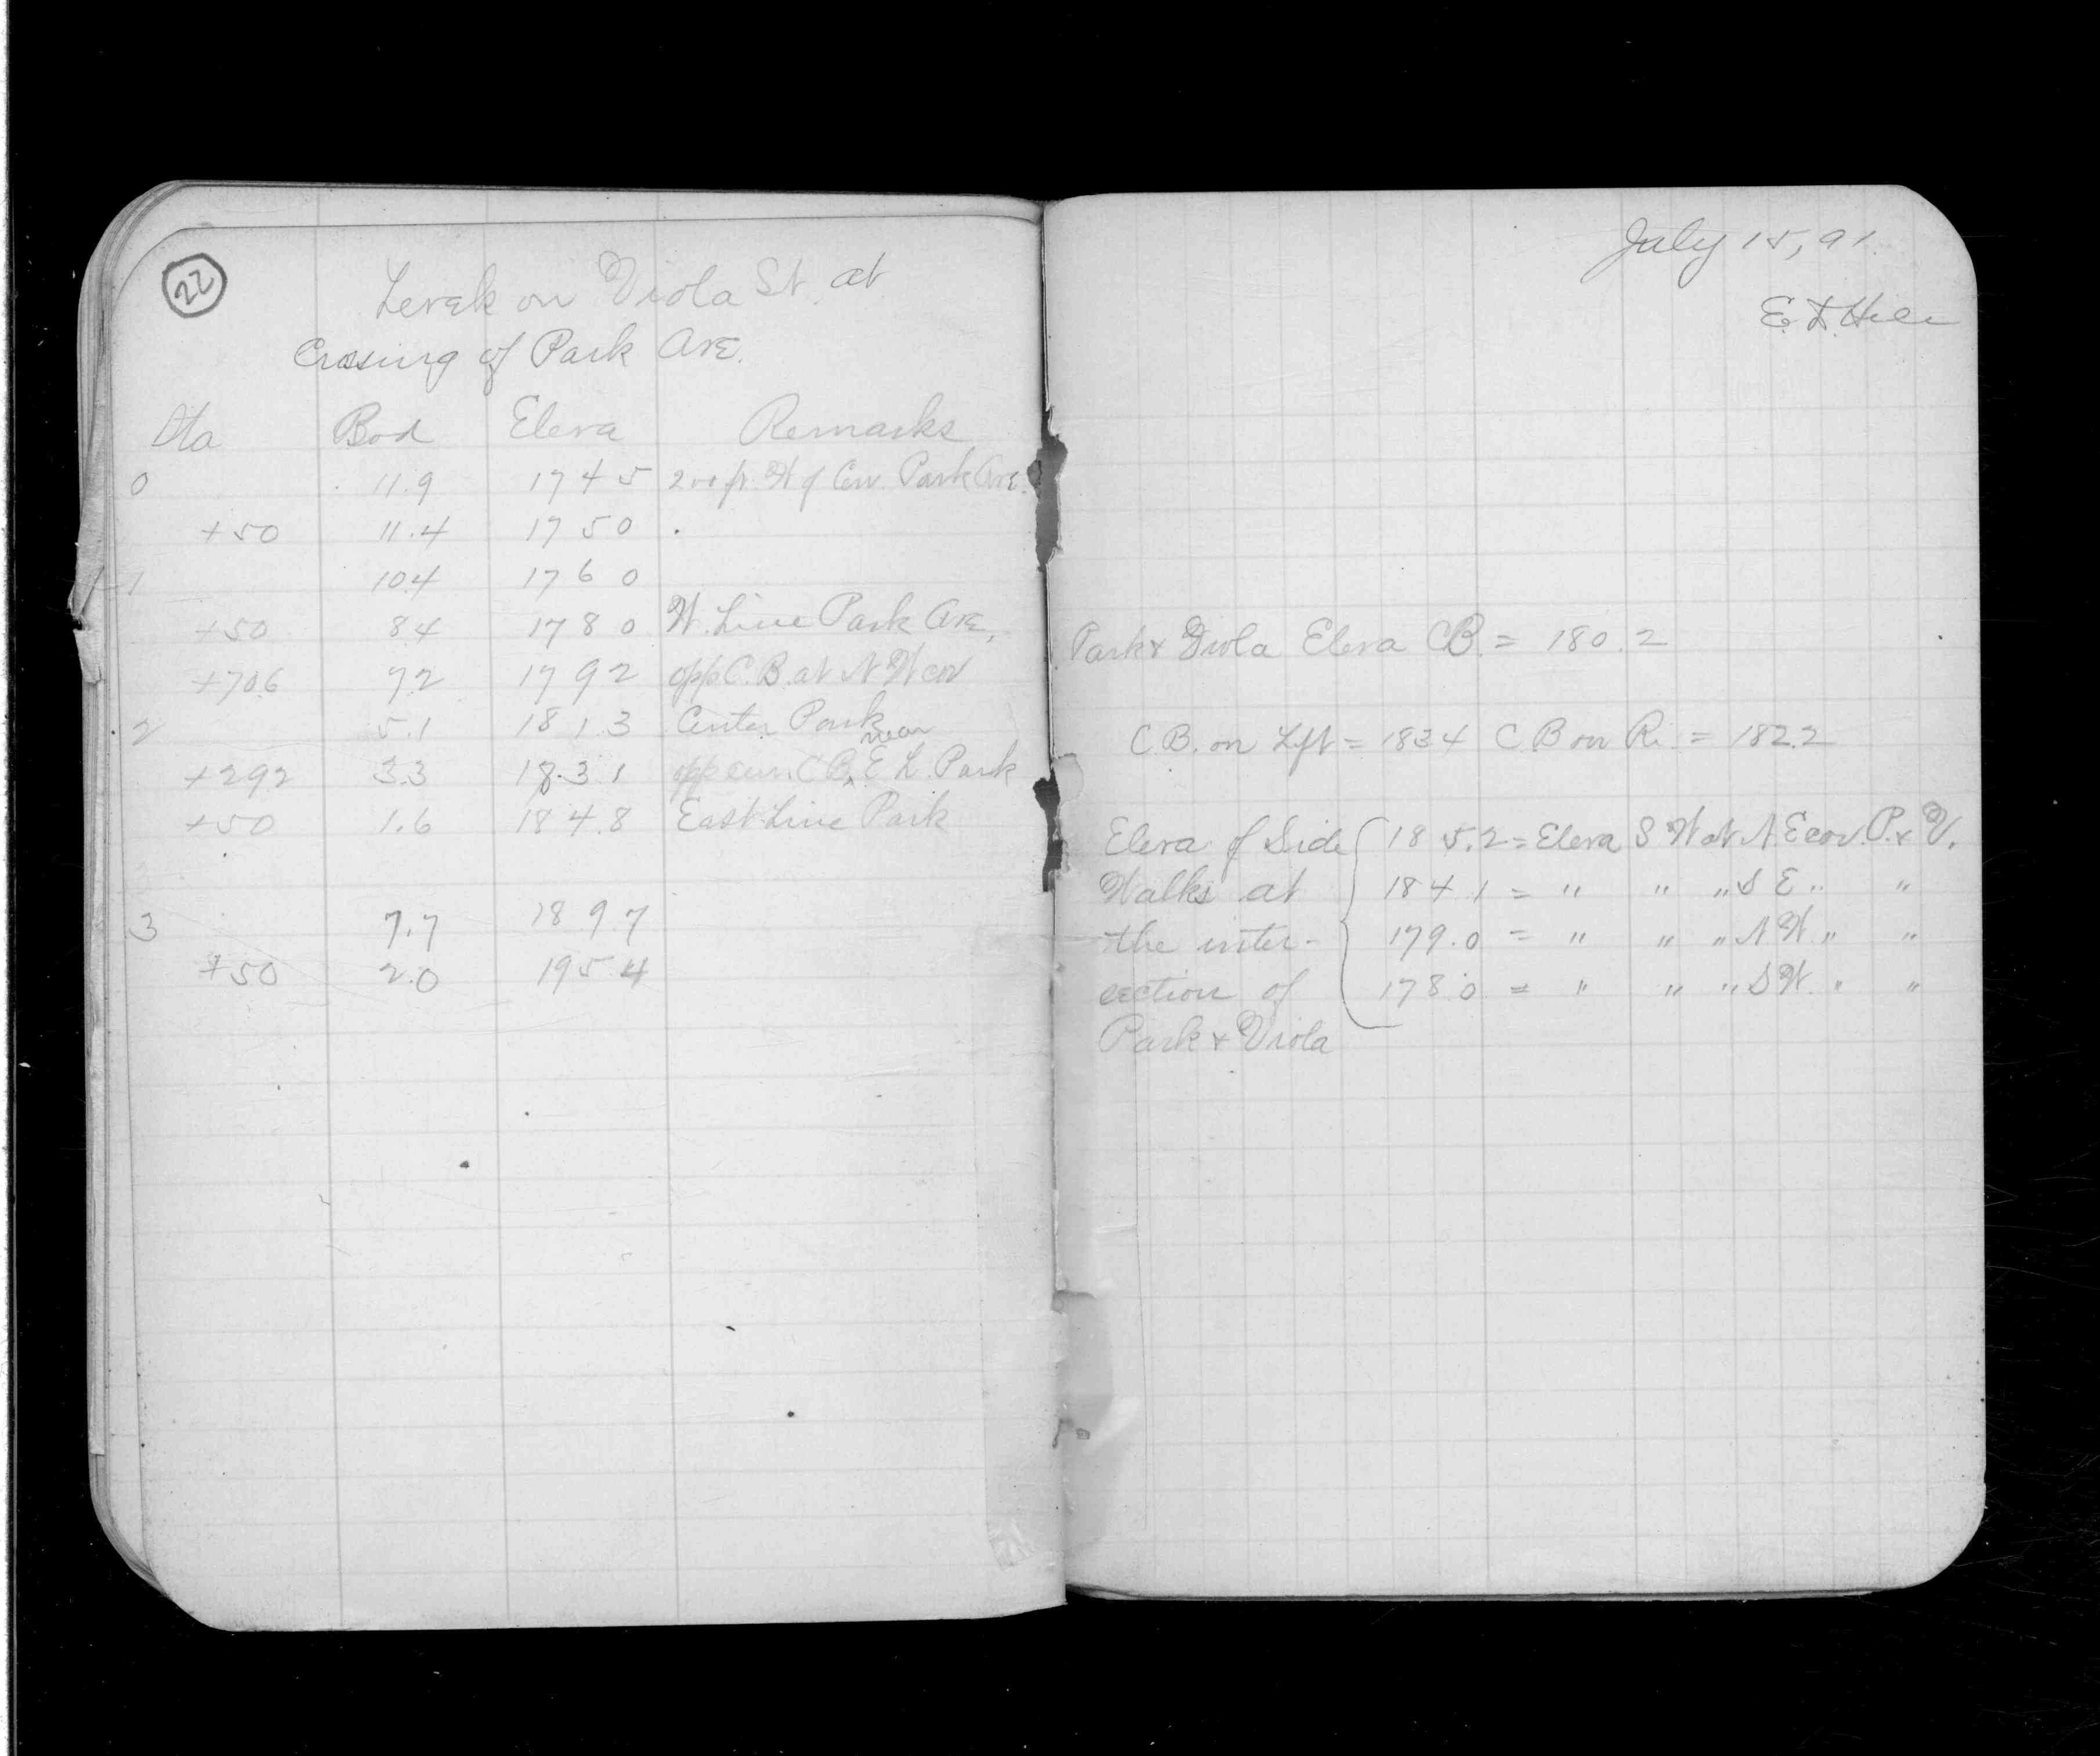 22
Levels on Viola St. at
Crossing of Park Ave.
Sta Rod Eleva Remarks
0 11.9 174 5 200 ft. W of Cen Park Ave.
+50 11.4 17 5 0
1 10.4 17 6 0
+50 8 4 17 8 0 W. Line Park Ave,
+70.6 7 2 17 9 2 opp C.B. at N W cor
2 5.1 18 1 3 Center Park
+29 2 3.3 18.3 1 opp C B, near E L. Park
+50 1.6 18 4.8 East Line Park
3 7.7 18 9 7
+50 2.0 195 4
July 15, 91.
Park & Viola Eleva C.B. = 180.2
C.B. on Lft = 183 4 C B on Ri. = 182.2
Eleva of Side 18 5.2 = Eleva S W at N E cor. P. & V.
Walks at 184 1 = " " " S E " "
the inter- 179.0 = " " " N W " "
section of 178.0 = " " " S W. " "
Park & Viola